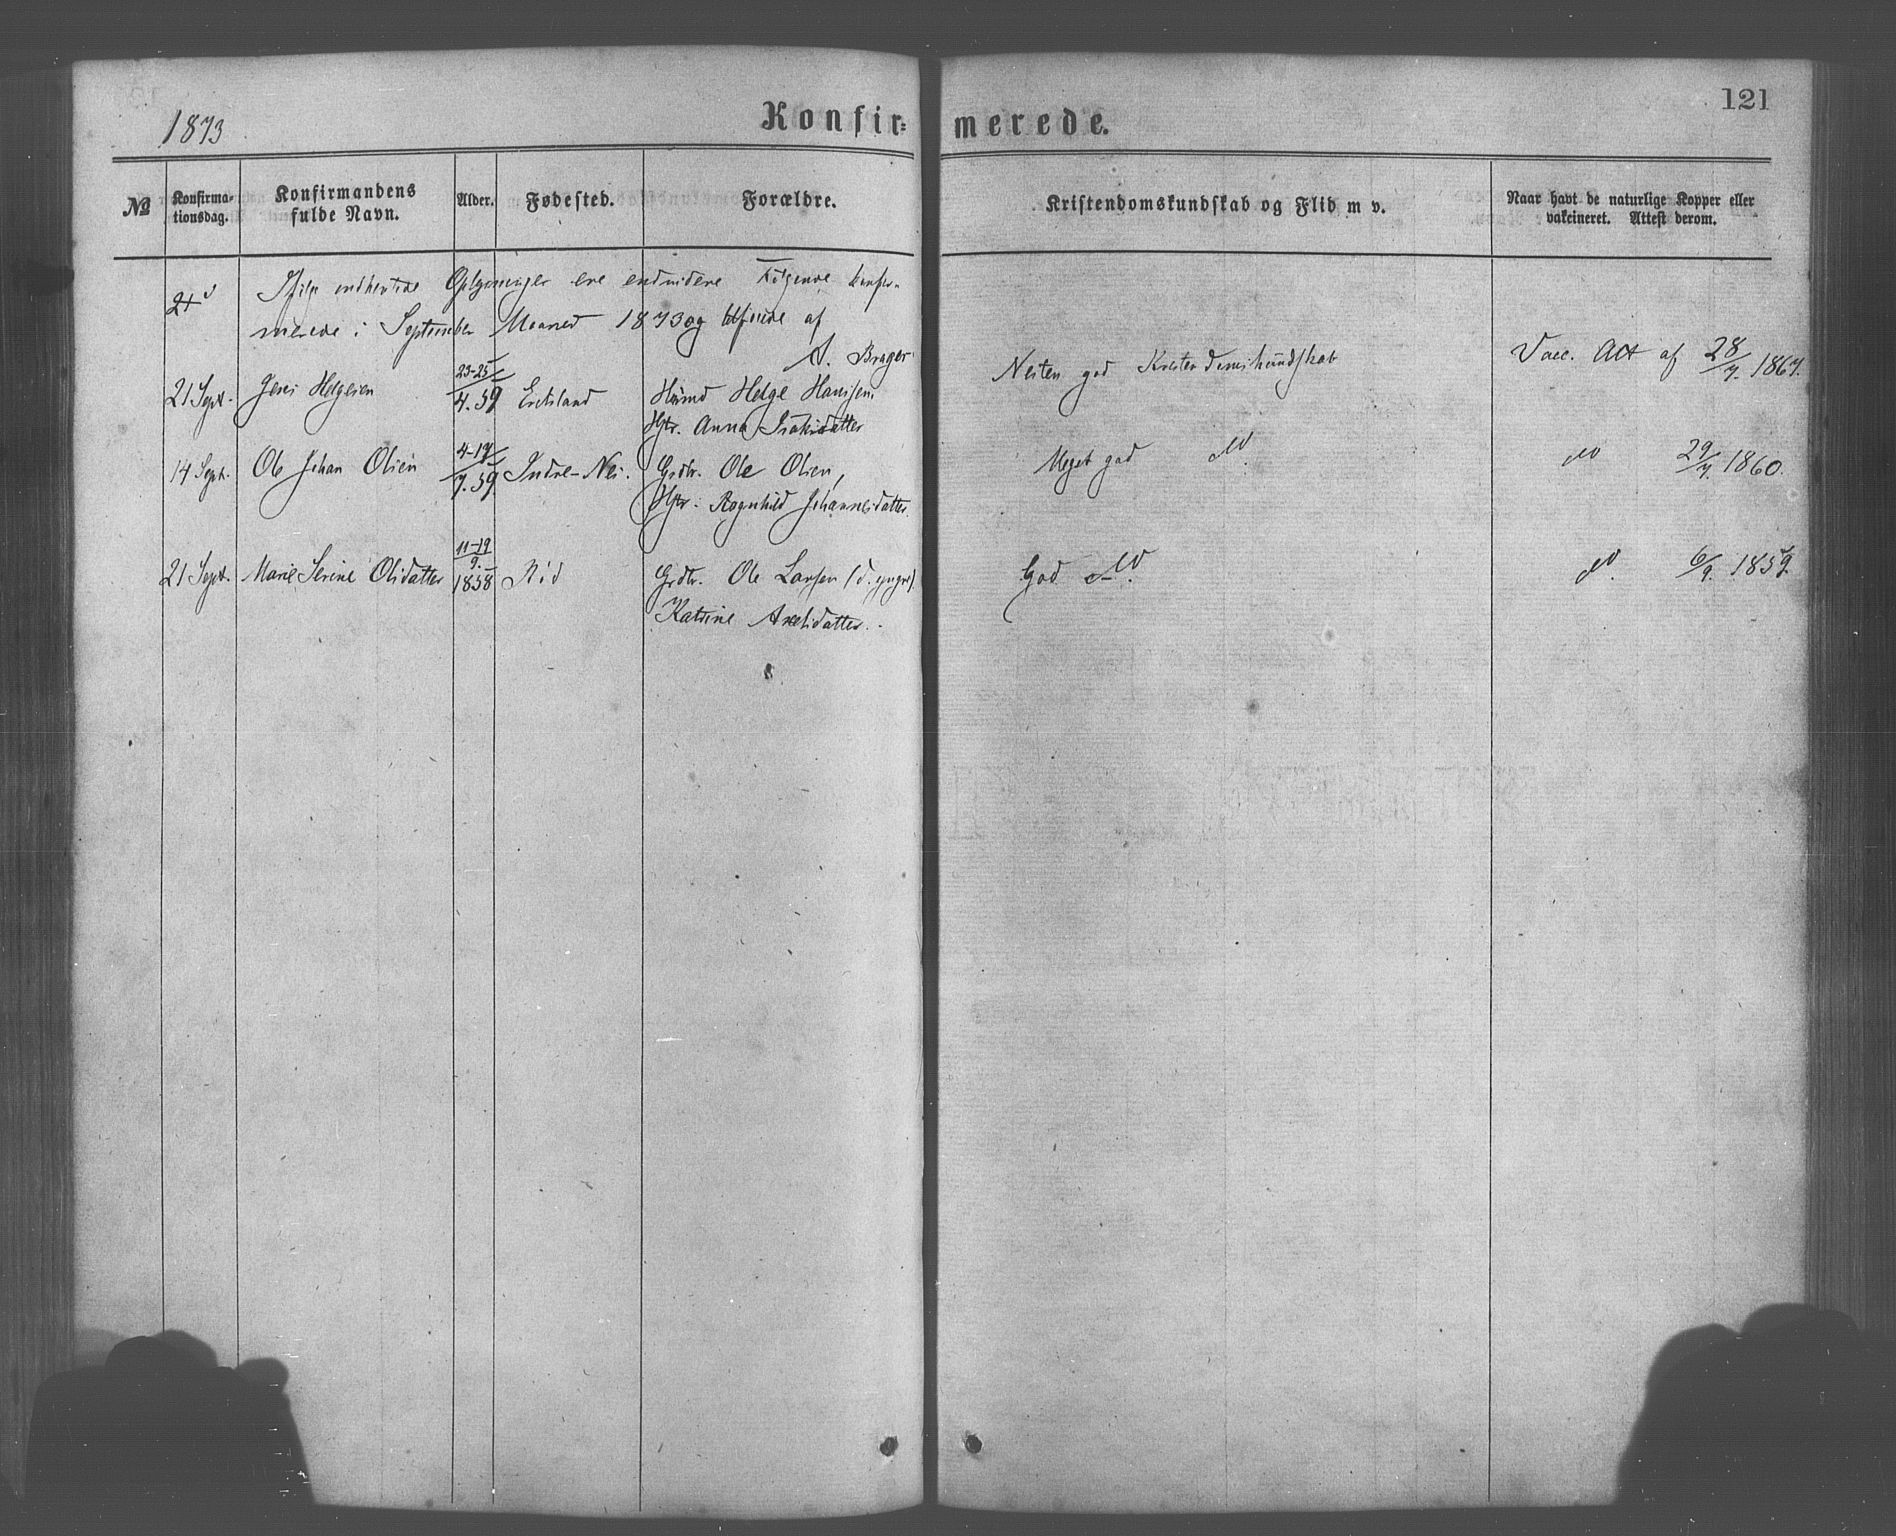 1873
Konfir=
merede.
121
№
Konfirma-
tionsdag.
Konfirmandens
fulde Navn.
Alder.
Fødested.
Forældre.
Kristendomskundskab og Flid m v.
Naar havt de naturlige Kopper eller
vakcineret. Attest derom.
indhentede Oplysninger ere endvidere Følgende konfir-
merede i September Maaned 1873 og af
A. Brager
21 Sept. Jens Helgesen 23-25/4. 59 Eidsland Huusmd Helge Hansen, Nesten god Kristendomskundskab Vacc. Att af 28/7. 1867.
Hstr. Anna Isaksdatter
14 Sept. Ole Johan Olsen 4-17/7. 59 Indre-Nes. Grdbr. Ole Olsen, Meget god do do 29/7. 1860.
Hstr. Ragnhild Johannesdatter.
21 Sept. Marie Serine Olsdatter 11-19/9. 1858 Rød Grdbr. Ole Larsen (d. yngre) God do. do. 6/9. 1859.
Katrine Axelsdatter.